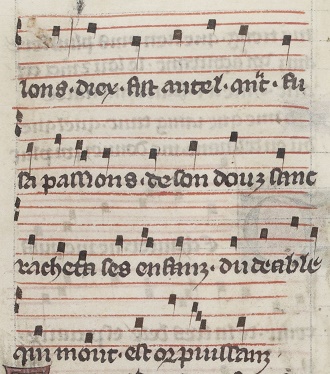 lons · diex · fist autel · qñt · fu
sa passions · de son douz sanc
racheta ses enfanz · du deable
qui mout · est or puissanz